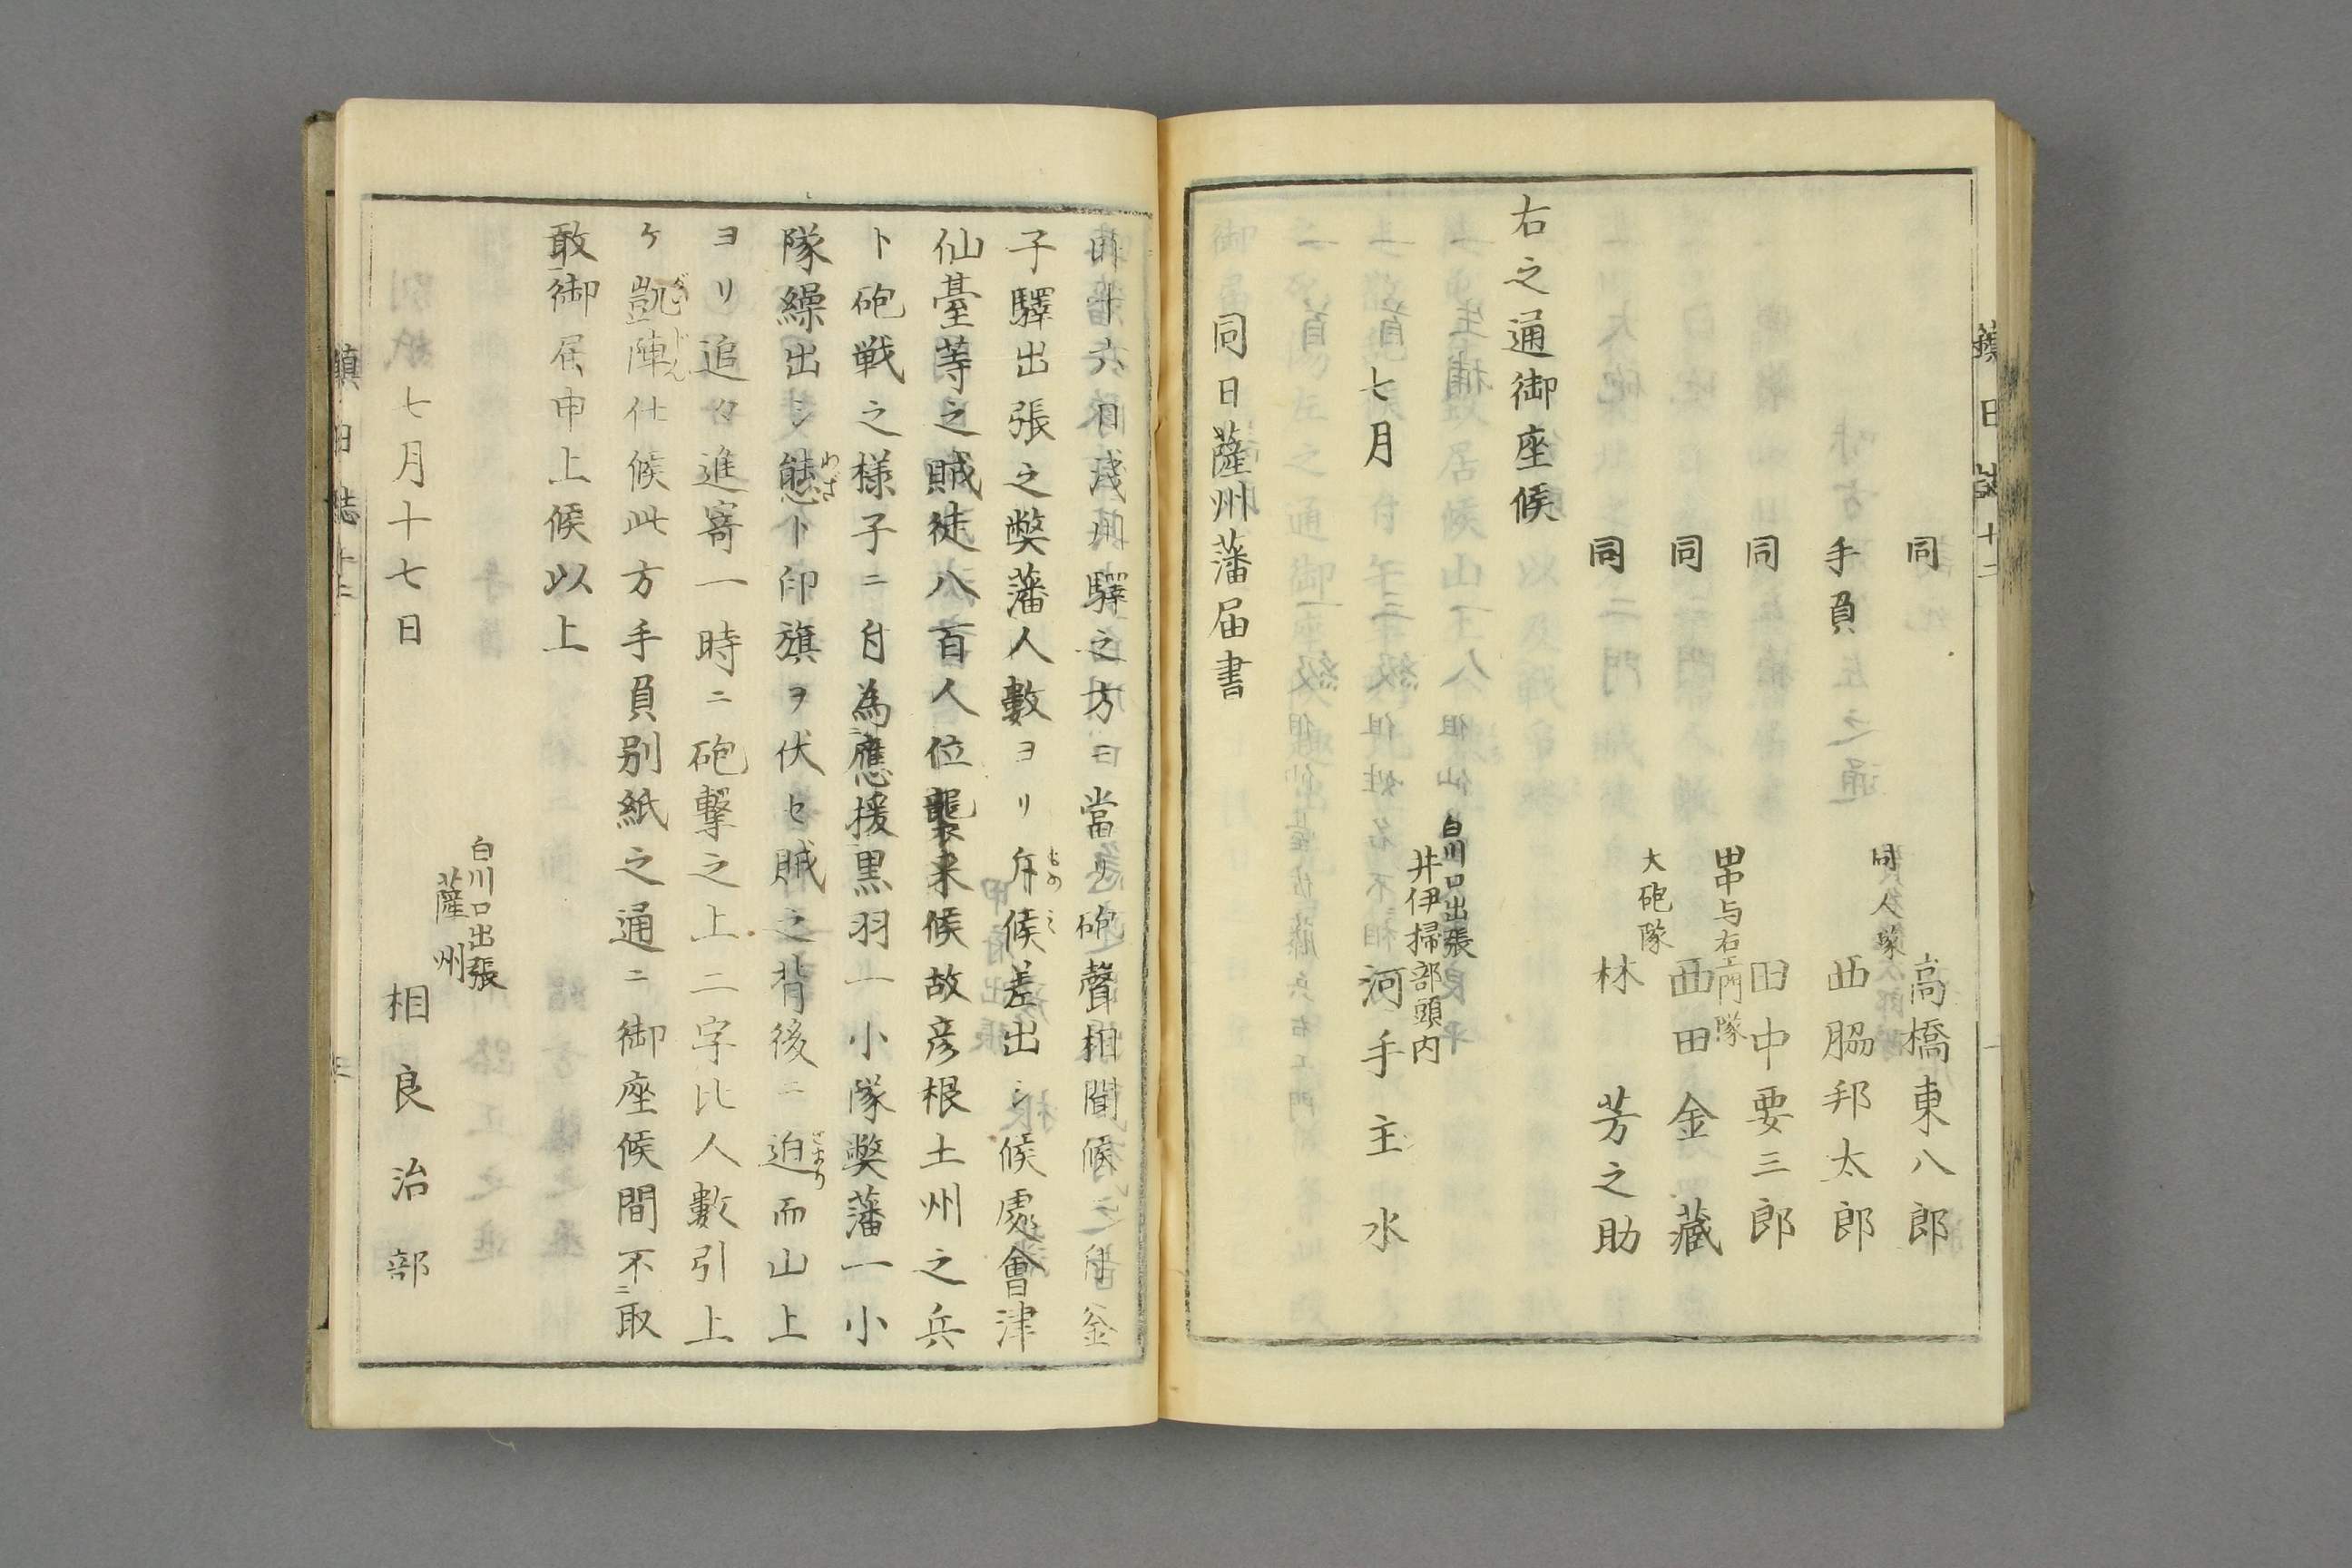 鎮日誌十二
同 高橋東八郎
同人隊
手負 西脇邦太郎
同 田中要三郎
田中与右エ門隊
同 西田金藏
大砲隊
同 林芳之助
右之通御座候
白川口出張
井伊掃部頭内
七月 河手主水
同日薩州藩届書
昨十六日淺川驛之方ヨ當リ砲聲相聞候ニ付釜
子驛出張之弊藩人數ヨリ斥候差出シ候處會津
仙臺等之賊徒八百人位襲来候故彦根土州之兵
ト砲戦之様子ニ付為應援黒羽一小隊弊藩一小
隊繰出シ態ト印旗ヲ伏セ賊之背後ニ迫而山上
ヨリ追々進寄一時ニ砲撃之上二字比人數引上
ケ凱陣仕候此方手負別紙之通ニ御座候間不取
敢御届申上候以上
白川口出張
薩州
七月十七日 相良治部
鎮日誌十二